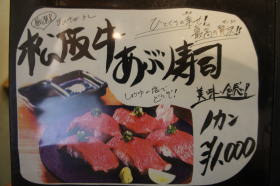 厳選!
松阪牛
あぶり寿司
ひとくちの幸せ!
最高の贅沢!!
しょうゆ or 塩で
どうぞ!
美味・自慢!
1カン
¥1,000